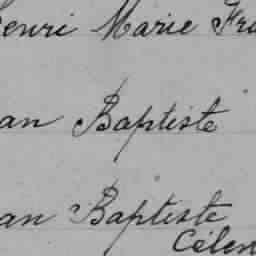 Henri Marie Fra
an Baptiste
an Baptiste
Célen